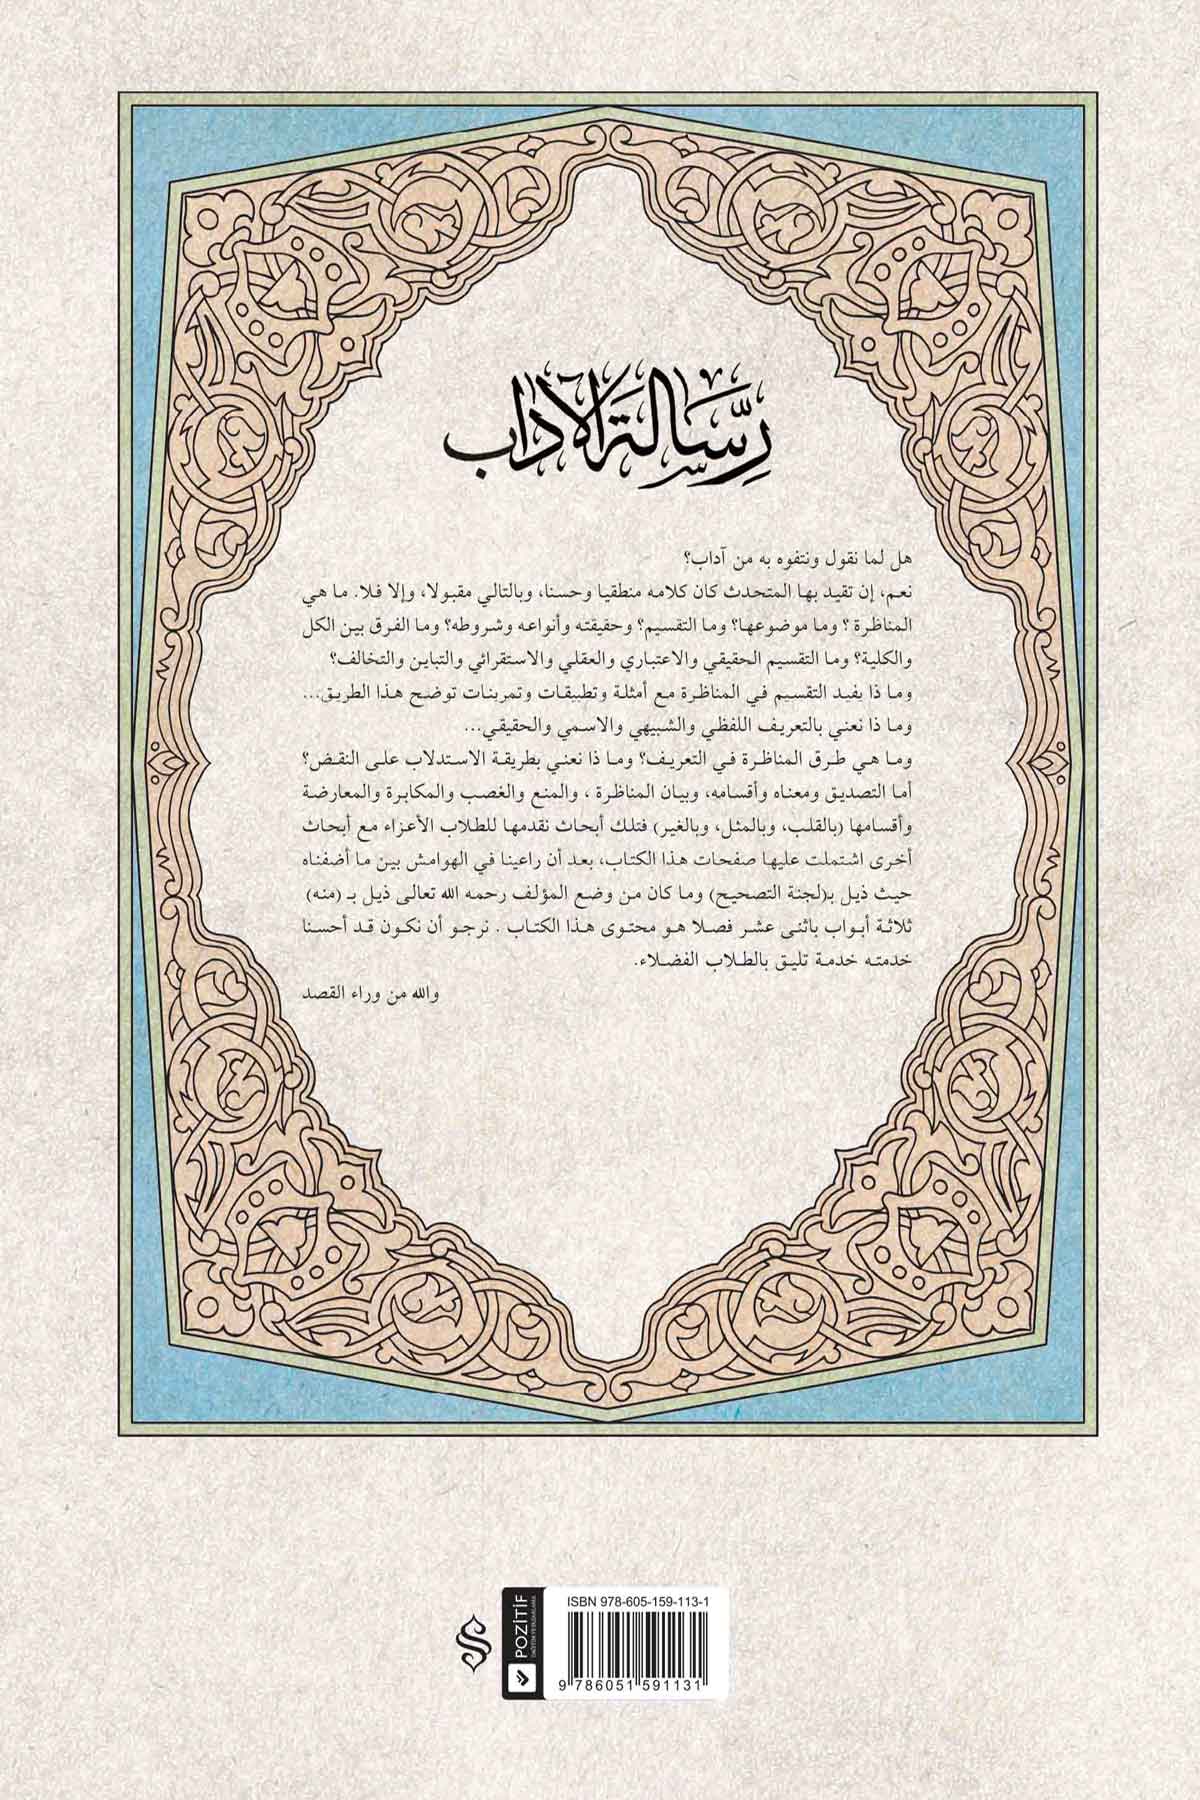 رسالة الآداب
هل لما نقول ونتفوه به من آداب؟
نعم، إن تقيد بها المتحدث كان كلامه منطقيا وحسنا، وبالتالي مقبولا، وإلا فلا. ما هي
المناظرة ؟ وما موضوعها؟ وما التقسيم؟ وحقيقته وأنواعه وشروطه؟ وما الفرق بين الكل
والكلية؟ وما التقسيم الحقيقي والاعتباري والعقلي والاستقرائي والتباين والتخالف؟
وما ذا يفيد التقسيم في المناظرة مع أمثلة وتطبيقات وتمرينات توضح هذا الطريق...
وما ذا نعني بالتعريف اللفظي والشبيهي والاسمي والحقيقي...
وما هي طرق المناظرة في التعريف؟ وما ذا نعني بطريقة الاستدلاب على النقض؟
أما التصديق ومعناه وأقسامه، وبيان المناظرة ، والمنع والغصب والمكابرة والمعارضة
وأقسامها (بالقلب، وبالمثل، وبالغير) فتلك أبحاث نقدمها للطلاب الأعزاء مع أبحاث
أخرى اشتملت عليها صفحات هذا الكتاب، بعد أن راعينا في الهوامش بين ما أضفناه
حيث ذيل بـ(لجنة التصحيح) وما كان من وضع المؤلف رحمه الله تعالى ذيل بـ (منه)
ثلاثة أبواب باثنى عشر فصلا هو محتوى هذا الكتاب . نرجو أن نكون قد أحسنا
خدمته خدمة تليق بالطلاب الفضلاء.
والله من وراء القصد
ISBN 978-605-159-113-1
POZİTİF
9 786051 591131